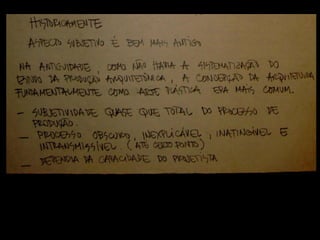 HISTORICAMENTE
ASPECTO SUBJETIVO É BEM MAIS ANTIGO
NA ANTIGUIDADE, COMO NÃO HAVIA A SISTEMATIZAÇÃO DO
ESTUDO DA PRODUÇÃO ARQUITETÔNICA, A CONCEPÇÃO DA ARQUITETURA
FUNDAMENTALMENTE COMO ARTE PLÁSTICA ERA MAIS COMUM.
- SUBJETIVIDADE QUASE QUE TOTAL DO PROCESSO DE
PRODUÇÃO.
- PROCESSO OBSCURO, INEXPLICÁVEL, INATINGÍVEL E
INTRANSMISSÍVEL. (ATÉ CERTO PONTO)
- DEPENDIA DA CAPACIDADE DO PROJETISTA